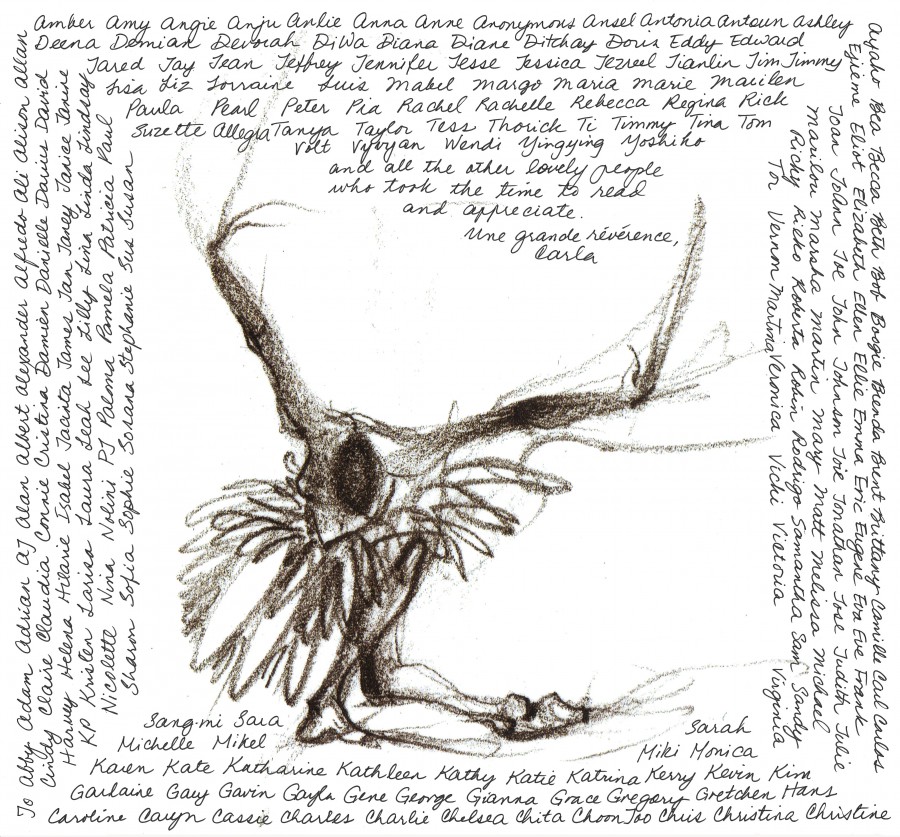 To Abby Adam Adrian AJ Alan Albert Alexander Alfredo Ali Alison Allan
Amber Amy Angie Anju Anlie Anna Anne Anonymous Ansel Antonia Antoun Ashley
Ayaho Bea Becca Beth Bob Boogie Brenda Brent Brittany Camille Carl Carlos
Caroline Caryn Cassie Charles Charlie Chelsea Chita ChoonToo Chris Christina Christine
Cindy Claire Claudia Connie Cristina Damien Danielle Darius David
Deena Demian Devorah DiWa Diana Diane Ditchay Doris Eddy Edward
Ejieme Eliot Elizabeth Ellen Ellie Emma Eric Eugene Eva Eve Frank
Garlaine Gary Gavin Gayla Gene George Gianna Grace Gregory Gretchen Hans
Harvey Helena Hilarie Isabel Jacinta James Jan Janey Janice Janine
Jared Jay Jean Jeffrey Jennifer Jesse Jessica Jezreel Jianlin Jim Jimmy
Joan JoAnn Joe John Johnson Joie Jonathan Jose Judith Julie
Karen Kate Katharine Kathleen Kathy Katie Katrina Kerry Kevin Kim
KP Kristen Larisa Laura Leah Lee Lilly Lina Linda Lindsay
Lisa Liz Lorraine Luis Mabel Margo Maria Marie Marilen
Marilou Marsha Martin Mary Matt Melissa Michael
Michelle Mikel
Miki Monica
Nicolette Nina Nolini PJ Paloma Pamela Patricia Paul
Paula Pearl Peter Pia Rachel Rachelle Rebecca Regina Rick
Ricky Rieko Roberta Robin Rodrigo Samantha Sam Sandy
Sang-mi Sara
Sarah
Sharon Sofia Sophie Sorana Stephanie Sus Susan
Suzette Allegra Tanya Taylor Tess Thorick Ti Timmy Tina Tom
Tor Vernon Martina Veronica Vicki Victoria Virginia
Volt Vyvyan Wendi Yingying Yoshiko
and all the other lovely people
who took the time to read
and appreciate.
Une grande révérence,
Carla